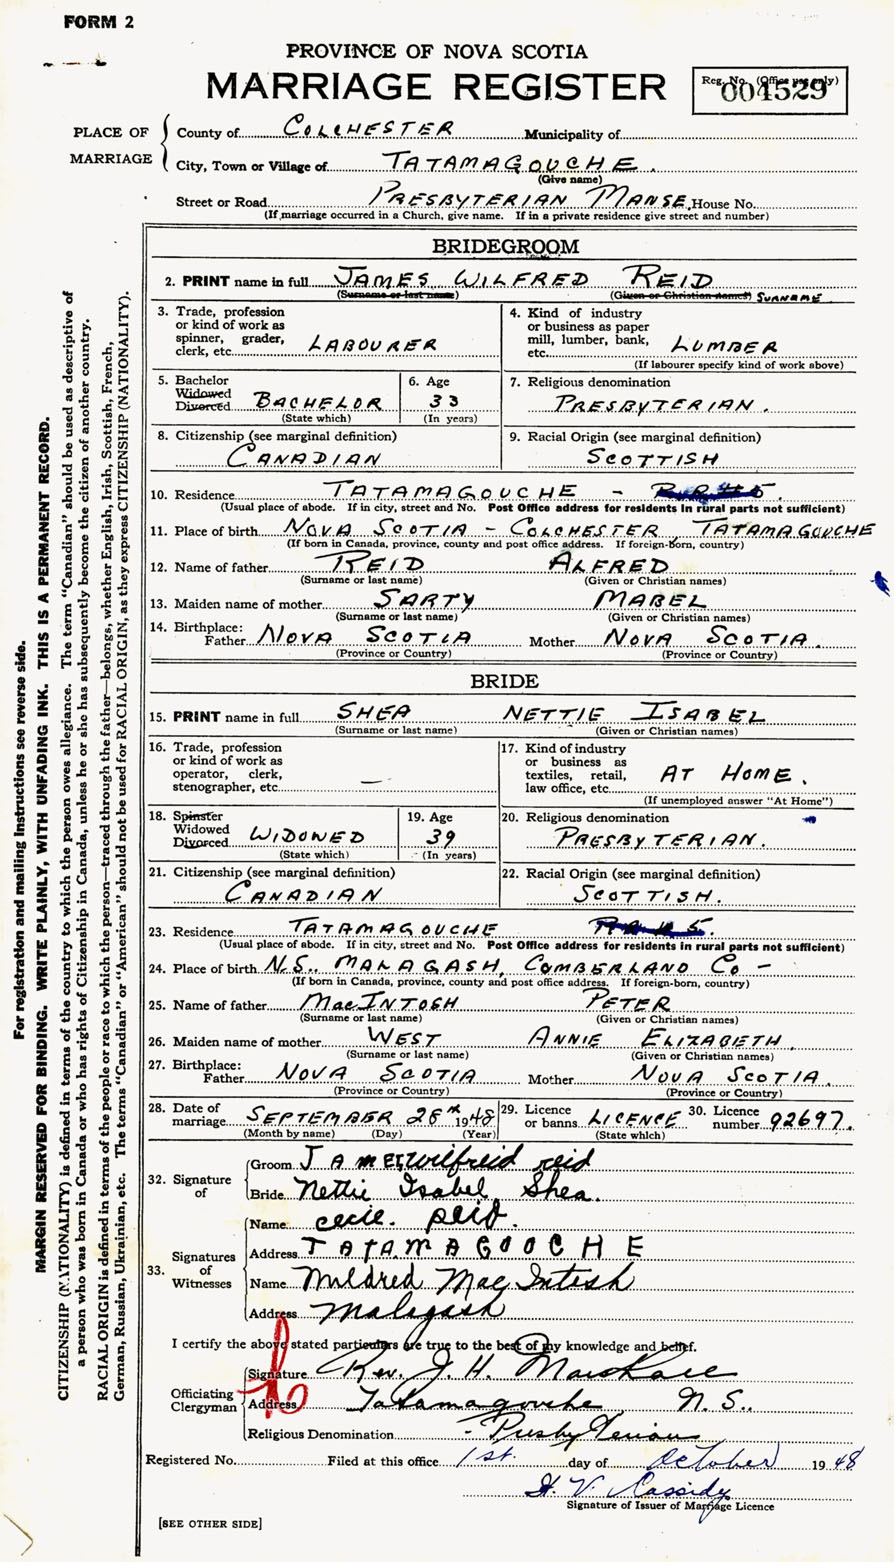 FORM 2
PROVINCE OF NOVA SCOTIA
MARRIAGE REGISTER
Reg. No. (Office use only)
004529
PLACE OF MARRIAGE
County of COLCHESTER Municipality of
City, Town or Village of TATAMAGOUCHE.
(Give name)
Street or Road PRESBYTERIAN MANSE, House No.
(If marriage occurred in a Church, give name. If in a private residence give street and number)
BRIDEGROOM
2. PRINT name in full JAMES WILFRED REID
(Surname or last name) (Given or Christian names) SURNAME
3. Trade, profession or kind of work as spinner, grader, clerk, etc. LABOURER
4. Kind of industry or business as paper mill, lumber, bank, etc. LUMBER
(If labourer specify kind of work above)
5. Bachelor Widowed Divorced BACHELOR
(State which)
6. Age 33
(In years)
7. Religious denomination
PRESBYTERIAN.
8. Citizenship (see marginal definition)
CANADIAN
9. Racial Origin (see marginal definition)
SCOTTISH
10. Residence TATAMAGOUCHE -
(Usual place of abode. If in city, street and No. Post Office address for residents in rural parts not sufficient)
11. Place of birth NOVA SCOTIA - COLCHESTER TATAMAGOUCHE
(If born in Canada, province, county and post office address. If foreign-born, country)
12. Name of father REID ALFRED
(Surname or last name) (Given or Christian names)
13. Maiden name of mother SARTY MABEL
(Surname or last name) (Given or Christian names)
14. Birthplace:
Father NOVA SCOTIA Mother NOVA SCOTIA.
(Province or Country) (Province or Country)
BRIDE
15. PRINT name in full SHEA NETTIE ISABEL
(Surname or last name) (Given or Christian names)
16. Trade, profession or kind of work as operator, clerk, stenographer, etc. —
17. Kind of industry or business as textiles, retail, law office, etc. AT HOME.
(If unemployed answer "At Home")
18. Spinster Widowed Divorced WIDOWED
(State which)
19. Age 39
(In years)
20. Religious denomination
PRESBYTERIAN.
21. Citizenship (see marginal definition)
CANADIAN
22. Racial Origin (see marginal definition)
SCOTTISH.
23. Residence TATAMAGOUCHE
(Usual place of abode. If in city, street and No. Post Office address for residents in rural parts not sufficient)
24. Place of birth N.S. MALAGASH, CUMBERLAND CO -
(If born in Canada, province, county and post office address. If foreign-born, country)
25. Name of father MacINTOSH PETER
(Surname or last name) (Given or Christian names)
26. Maiden name of mother WEST ANNIE ELIZABETH.
(Surname or last name) (Given or Christian names)
27. Birthplace:
Father NOVA SCOTIA Mother NOVA SCOTIA.
(Province or Country) (Province or Country)
28. Date of marriage SEPTEMBER 28th 1948
(Month by name) (Day) (Year)
29. Licence or banns LICENCE
(State which)
30. Licence number 92697.
32. Signature of
Groom James Wilfreid reid
Bride Nettie Isabel Shea.
33. Signatures of Witnesses
Name cecil. Reid.
Address TATAMAGOOCHE
Name Mildred Mac Intosh
Address Malagash
I certify the above stated particulars are true to the best of my knowledge and belief.
Officiating Clergyman
Signature Rev. J. H. Marshall
Address Tatamagouche N. S..
Religious Denomination - Presbyterian
Registered No. Filed at this office 1st. day of October 1948
H. V. Cassidy
Signature of Issuer of Marriage Licence
[SEE OTHER SIDE]
For registration and mailing instructions see reverse side.
MARGIN RESERVED FOR BINDING. WRITE PLAINLY, WITH UNFADING INK. THIS IS A PERMANENT RECORD.
CITIZENSHIP (NATIONALITY) is defined in terms of the country to which the person owes allegiance. The term "Canadian" should be used as descriptive of
a person who was born in Canada or who has rights of Citizenship in Canada, unless he or she has subsequently become the citizen of another country.
RACIAL ORIGIN is defined in terms of the people or race to which the person—traced through the father—belongs, whether English, Irish, Scottish, French,
German, Russian, Ukrainian, etc. The terms "Canadian" or "American" should not be used for RACIAL ORIGIN, as they express CITIZENSHIP (NATIONALITY).